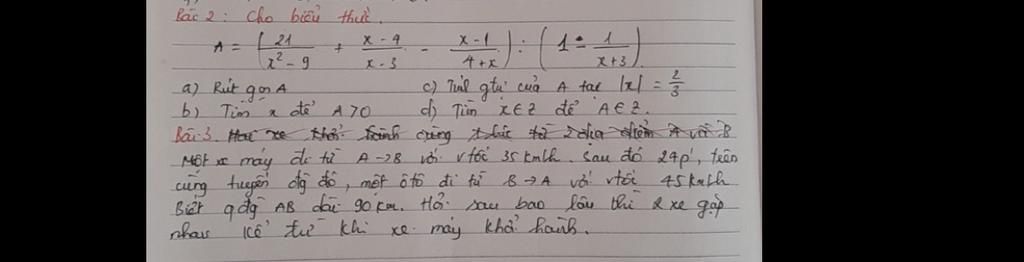 Bài 2: Cho biểu thức.
A = ( 21 / x² - 9 + x - 4 / x - 3 - x - 1 / 4 + x ) : ( 1 - 1 / x + 3 )
a) Rút gọn A c) Tính gtrị của A tại |x| = 2/3
b) Tìm x để A > 0 d) Tìm x ∈ Z để A ∈ Z.
Bài 3. Hai xe khởi hành cùng 1 lúc từ 2 địa điểm A và B
Một xe máy đi từ A → B với vtốc 35 km/h. Sau đó 24p', trên
cùng tuyến đg đó, một ôtô đi từ B → A với vtốc 45 km/h
Biết qđg AB dài 90 km. Hỏi sau bao lâu thì 2 xe gặp
nhau kể từ khi xe máy khởi hành.